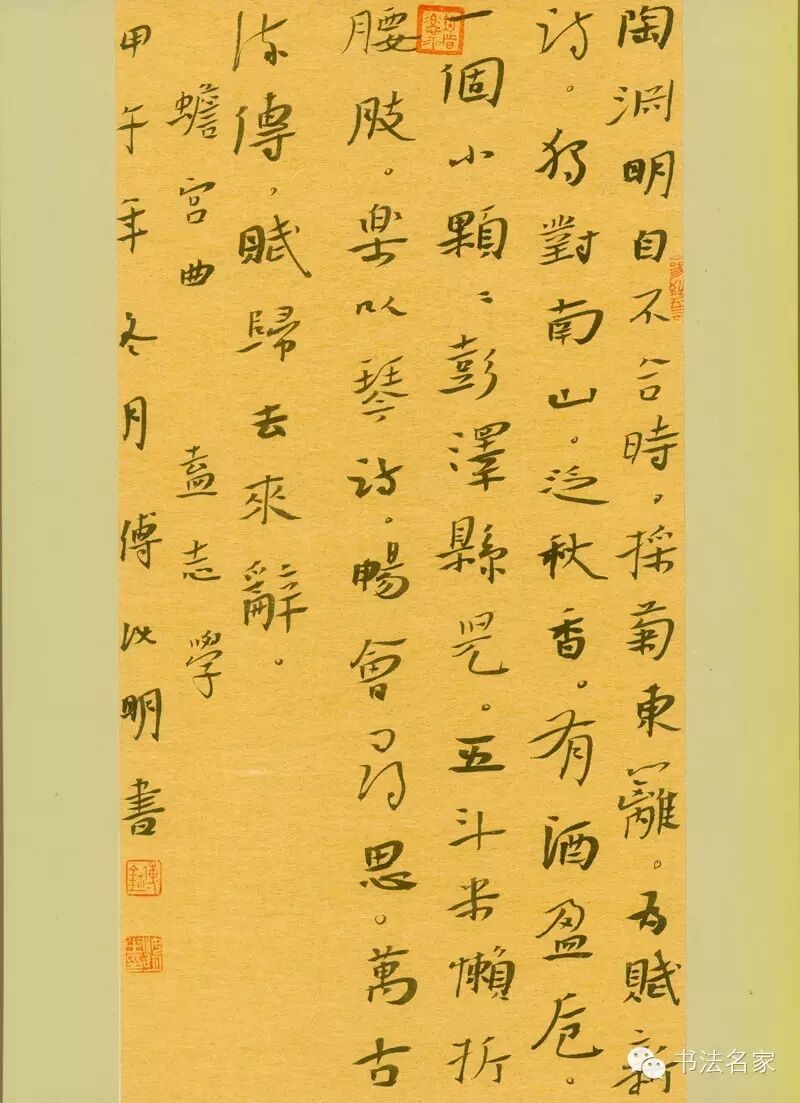 陶渊明自不合時，採菊東籬。為賦新
詩。独對南山。泛秋香。有酒盈卮。
一個小顆〻彭澤縣児。五斗米懶折
腰肢。楽以琴詩。暢會尋思。萬古
流傳，賦歸去來辭。
蟾宮曲 孟志學
甲午年冬月傅汝明書
书法名家